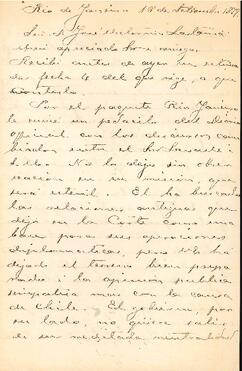 Rio de Janeiro 18 de Setiembre 1879
Sor. Dn José Victorino Lastarria
mui apreciado Sor. i amigo.
Recibí antes de ayer su estimada
fecha 6 del que rige, a que
contesto.
Por el paquete Rio Janeiro
le envié un pedacito del Diario
official, con los discursos cam-
biados entre el Sor
i. No lo dejo sin obser-
vacion en su mision, que
será estéril. El ha buscado
las relaciones antiguas que
dejó en la Corte como una
base para sus operaciones
diplomáticas, pero Vd. ha
dejado el terreno bien prepa
rado i la opinion publica
simpatiza mais con la causa
de Chile. El gobierno, por
su lado, no quiere salir
de su meditada neutralidad